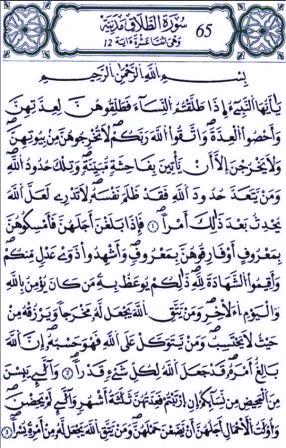 65 سورة الطلاق مدنية
وهي اثنتا عشرة ءاية 12
بسم الله الرحمن الرحيم
يأيها النبيء اذا طلقتم النساء فطلقوهن لعدتهن
وأحصوا العدة واتقوا الله ربكم لا تخرجوهن من بيوتهن
ولا يخرجن إلا أن يأتين بفاحشة مبينة وتلك حدود الله
ومن يتعد حدود الله فقد ظلم نفسه لا تدرى لعل الله
يحدث بعد ذلك أمرا ١ فإذا بلغن أجلهن فأمسكوهن
بمعروف أو فارقوهن بمعروف وأشهدوا ذوى عدل منكم
وأقيموا الشهادة لله ذلكم يوعظ به من كان يومن بالله
واليوم الاخر ومن يتق الله يجعل له مخرجا ويرزقه من
حيث لا يحتسب ومن يتوكل على الله فهو حسبه إن الله
بالغ أمره قد جعل الله لكل شىء قدرا والے يئسن
من المحيض من نسائكم إن ارتبتم فعدتهن ثلثة أشهر والے لم يحضن
وأولت الاحمال أجلهن أن يضعن حملهن ومن يتق الله يجعل له من أمره يسرا